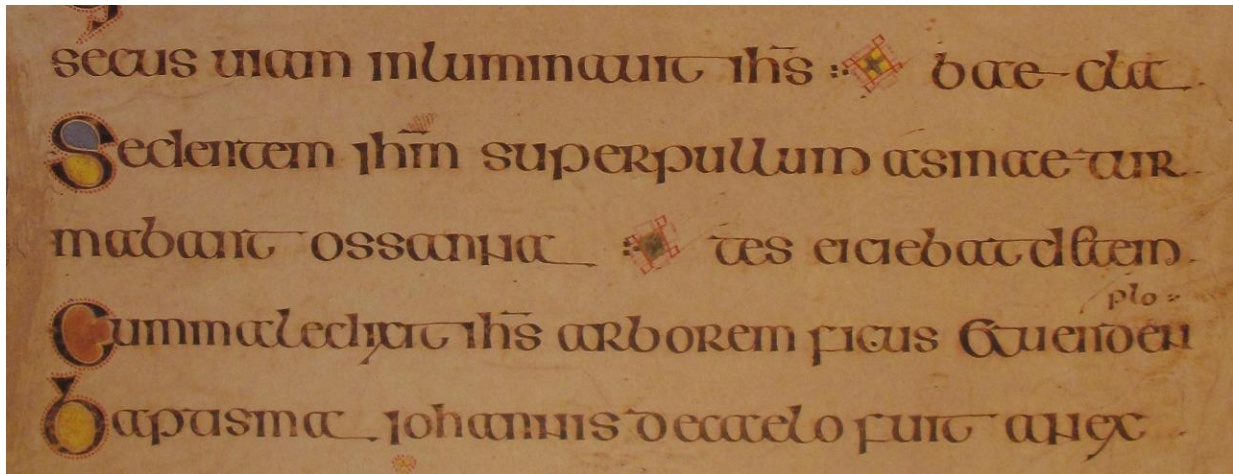 secus uiam inluminauit ihs̄ bae cla
Sedentem ihm̄ super pullum asinae tur
mabant ossanna tes eiciebat detem
plo
Cum maledixit ihs̄ arborem ficus &uenden
baptisma iohannis decaelo fuit anex